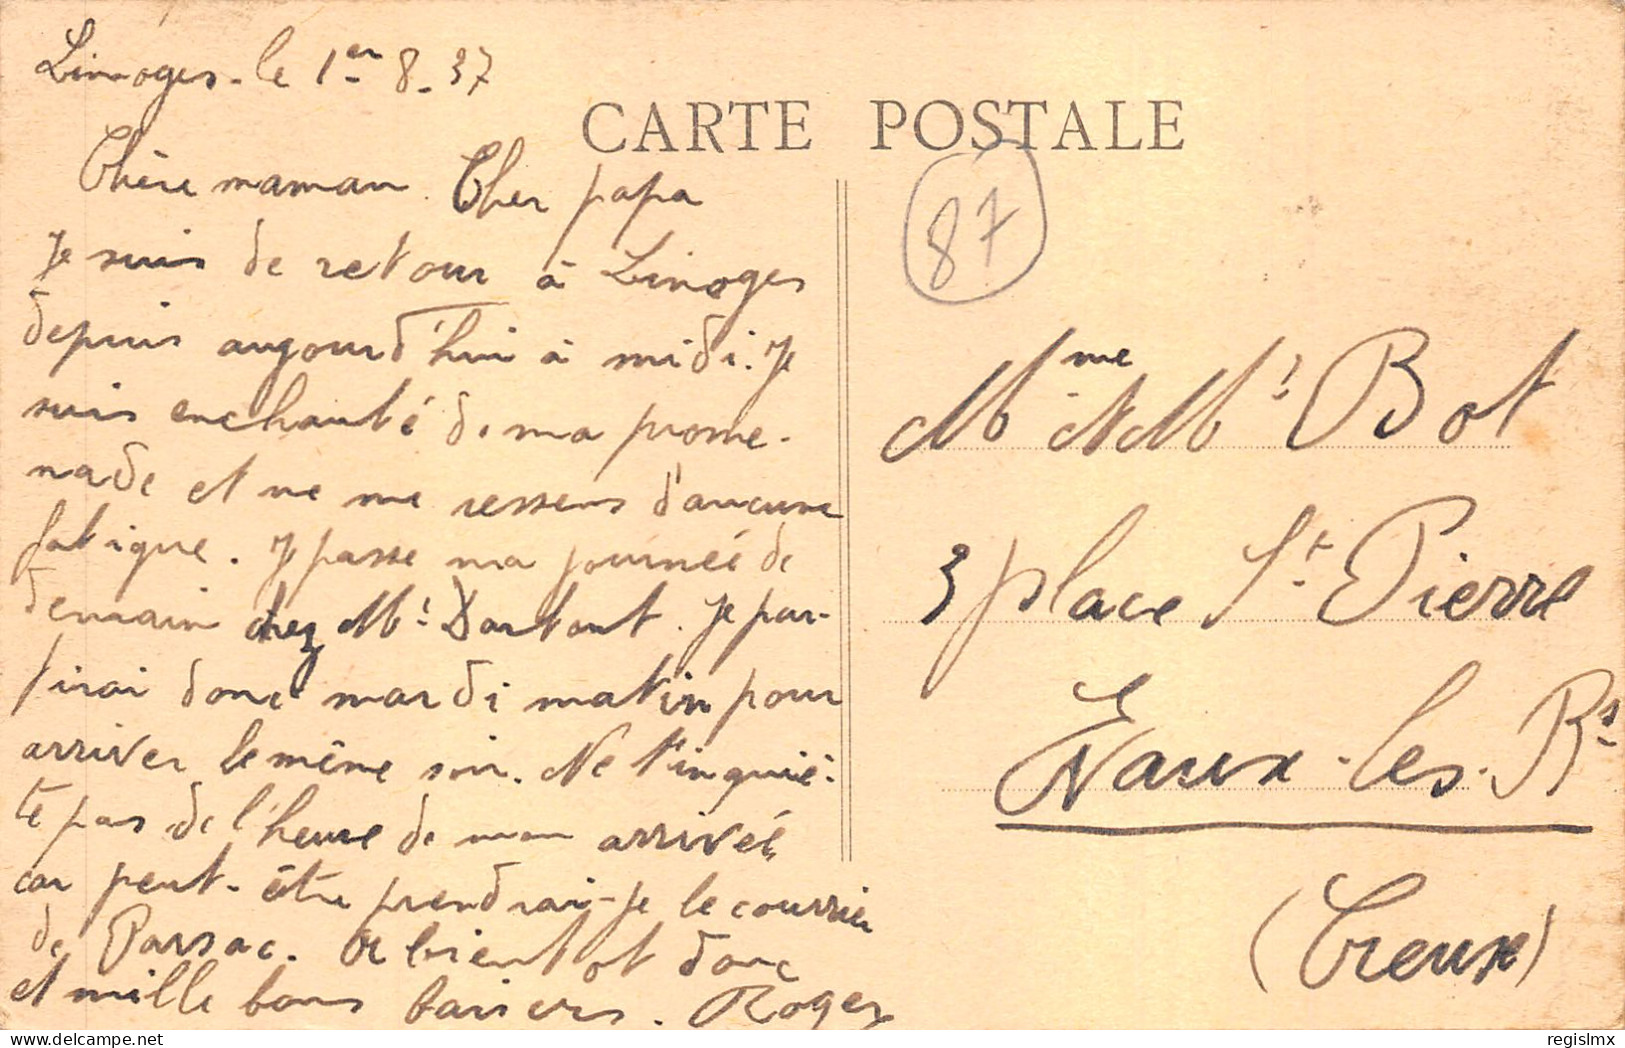 Limoges - le 1er 8 - 37
CARTE POSTALE
87
Chère maman. Cher papa
Je suis de retour à Limoges
depuis aujourd'hui à midi. Je
suis enchanté de ma prome-
nade et ne me ressens d'aucune
fatigue. Je passe ma journée de
demain chez Mr Dartout. Je par-
tirai donc mardi matin pour
arriver le même soir. Ne t'inquiè-
te pas de l'heure de mon arrivée
car peut-être prendrai-je le courrier
de Parsac. A bientôt donc
et mille bons baisers. Roger
Mme & Mr Bot
3 place St Pierre
Evaux-les-Bs
(Creuse)
delcampe.net
regislmx